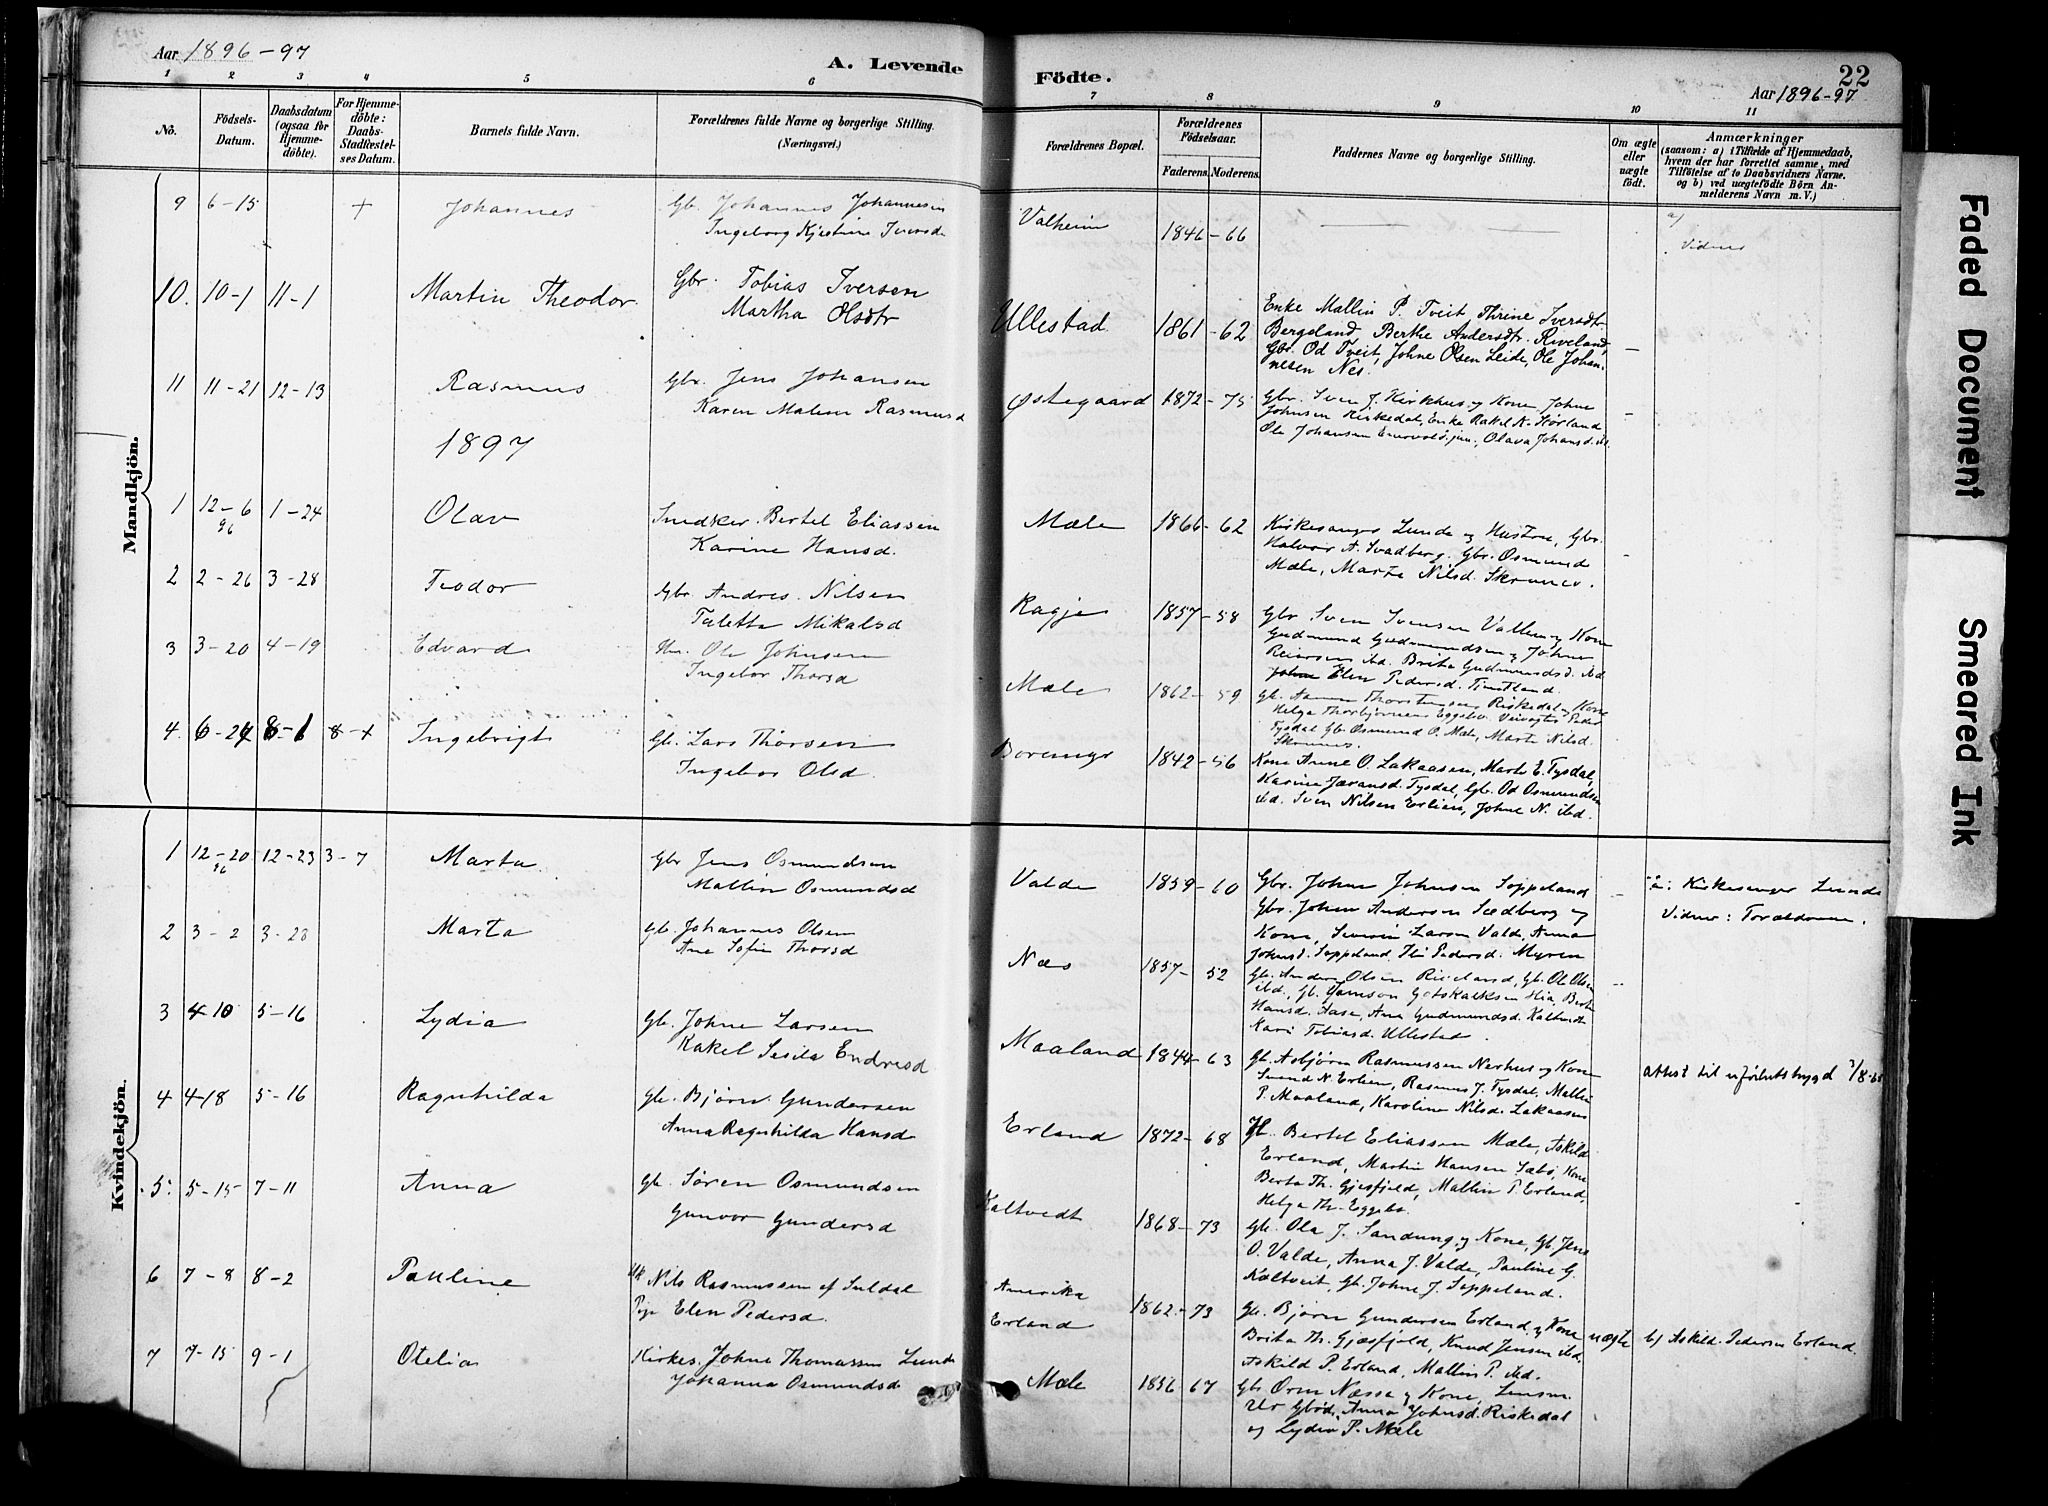 Aar 1896-97
A. Levende
Födte.
22
Aar 1896-97
1 2 3 4 5 6 7 8 9 10 11
No.
Födsels-
Datum.
Daabsdatum
(ogsaa for
Hjemme-
döbte).
For Hjemme-
döbte:
Daabs-
Stadfæstel-
ses Datum.
Barnets fulde Navn.
Forældrenes fulde Navne og borgerlige Stilling.
(Næringsvei.)
Forældrenes Bopæl.
Forældrenes
Födselsaar.
Faderens. Moderens.
Faddernes Navne og borgerlige Stilling.
Om ægte
eller
uægte
født.
Anmærkninger
(saasom: a) i Tilfælde af Hjemmedaab,
hvem der har forrettet samme, med
Tilföielse af to Daabsvidners Navne.
og b) ved uægtefödte Börn An-
melderens Navn m. V.)
Mandkjön.
9 6-15 + Johannes Gb. Johannes Johannesen
Ingeborg Kjestine Iversd
Valheim 1846-66
a)
Vidner
10. 10-1 11-1 Martin Theodor Gbr. Tobias Iversen
Martha Olsdtr
Ullestad 1861-62 Enke Mallin P. Tveit, Thrine Iversdtr
Bergeland, Berthe Andersdtr. Riveland,
Gbr. Od Tveit, Johne Olsen Leide, Ole Johan-
nesen Nes. -
11 11-21 12-13 Rasmus Gbr. Jens Johansen
Karen Malene Rasmusd
Østegaard 1872-75 Gbr. Sven J. Kirkhus og Kone, Johne
Johnsen Riskedal, Enke Rakel K. Hørland
Ole Johansen jun., Olava Johansd. -
1897
1 12-6 96 1-24 Olav Snedker Bertel Eliassen
Karine Hansd.
Mæle 1866-62 Kirkesanger Lunde og Hustru, Gbr.
Halvor A. Svadberg. Gbr. Osmund
Mæle, Marta Nilsd. -
2 2-26 3-28 Teodor Gbr Andres Nilsen
Taletta Mikalsd
Ragje 1857-58 Gbr Sven Svensen Valle og Kone
Gudmund Gudmundsen og Johne
Reiersen ibd. Brita Gudmundsd. ibd
Elen Pedersd. Timtland.
3 3-20 4-19 Edvard Ole Johnsen
Ingebor Thorsd
Mæle 1862-59 Gb. Thorstensen Riskedal og Kone
Helga Thorbjørnsen Eggebø. Peder
Tysdal Gb Osmund O. Mæle, Marte Nilsd.
4. 6-24 8-1 8-+ Ingebrigt Gb. Lars Thorsen
Ingebor Olsd.
1842-56 Kone Anne O. Lakaasen, Marte E. Tysdal,
Karine Jæransd. Tysdal, Gb. Od Osmundsen
ibd. Sven Nilsen Erlien, Johne N. ibd.
Kvindekjön.
1 12-20 96 12-23 3-7 Marta Gbr Jens Osmundsen
Mallin Osmundsd
Valde 1859-60 Gbr. Johne Johnsen Soppeland
Gbr. Johan Andersen Svadberg og
Kone, Severin Larsen Valde, Anna
Johnsd. Soppeland. Pedersd. Myren - a: Kirkesanger Lunde
Vidner: Forældrene.
2 3-2 3-28 Marta Gb. Johannes Olsen
Ane Sofie Thorsd
Næs 1857-52 Gb. Anders Olsen Riveland, Gb. Ole Olsen
ibd, Gb. Gotskalksen Hia, Berte
Hansd. Aase, Ane Gudmundsd. Kaltvedt
Kari Tobiasd. Ullestad. -
3 4-10 5-16 Lydia Gb. Johne Larsen
Rakel Sesila Endresd
Maaland 1844-63 Gb. Asbjørn Rasmussen Nerhus og Kone
Svend N. Erlien, Rasmus J. Tysdal, Mallin
P. Maaland, Karoline Nilsd. Lakaasen attest til
4 4-18 5-16 Ragnhilda Gb. Bjørn Gundersen
Anna Ragnhilda Hansd
Erland 1872-68 Bertel Eliassen Mæle, Askild
Erland, Martin Hansen Sæbø, Kone
Berta Th. Gjesfjeld, Mallin P. Erland,
Helga Th. Eggebø.
5. 5-15 7-11 Anna Gb. Søren Osmundsen
Gunvor Gundersd
Kaltvedt 1868-73 Gb. Ola J. Sandung og Kone, Gb. Jens
O. Valde, Anna J. Valde, Pauline G.
Kaltveit, Gb. Johne J. Soppeland.
6 7-8 8-2 Pauline Nils Rasmussen af Suldal
Pige Elen Pedersd.
Amerika
Erland 1862-73 Gb. Bjørn Gundersen Erland og Kone
Brita Th. Gjæsfjeld, Knud Jensen ibd,
Askild P. Erland, Mallin P. ibd. uægte b) Askild Pedersen Erland.
7 7-15 9-1 Otelia Kirkes. Johne Thomassen Lunde
Johanna Osmundsd
Mæle 1856 67 Gb. Orm Næssa og Kone,
Anna Johnsd. Riskedal
og Lydia P. Mæle
Faded Document
Smeared Ink